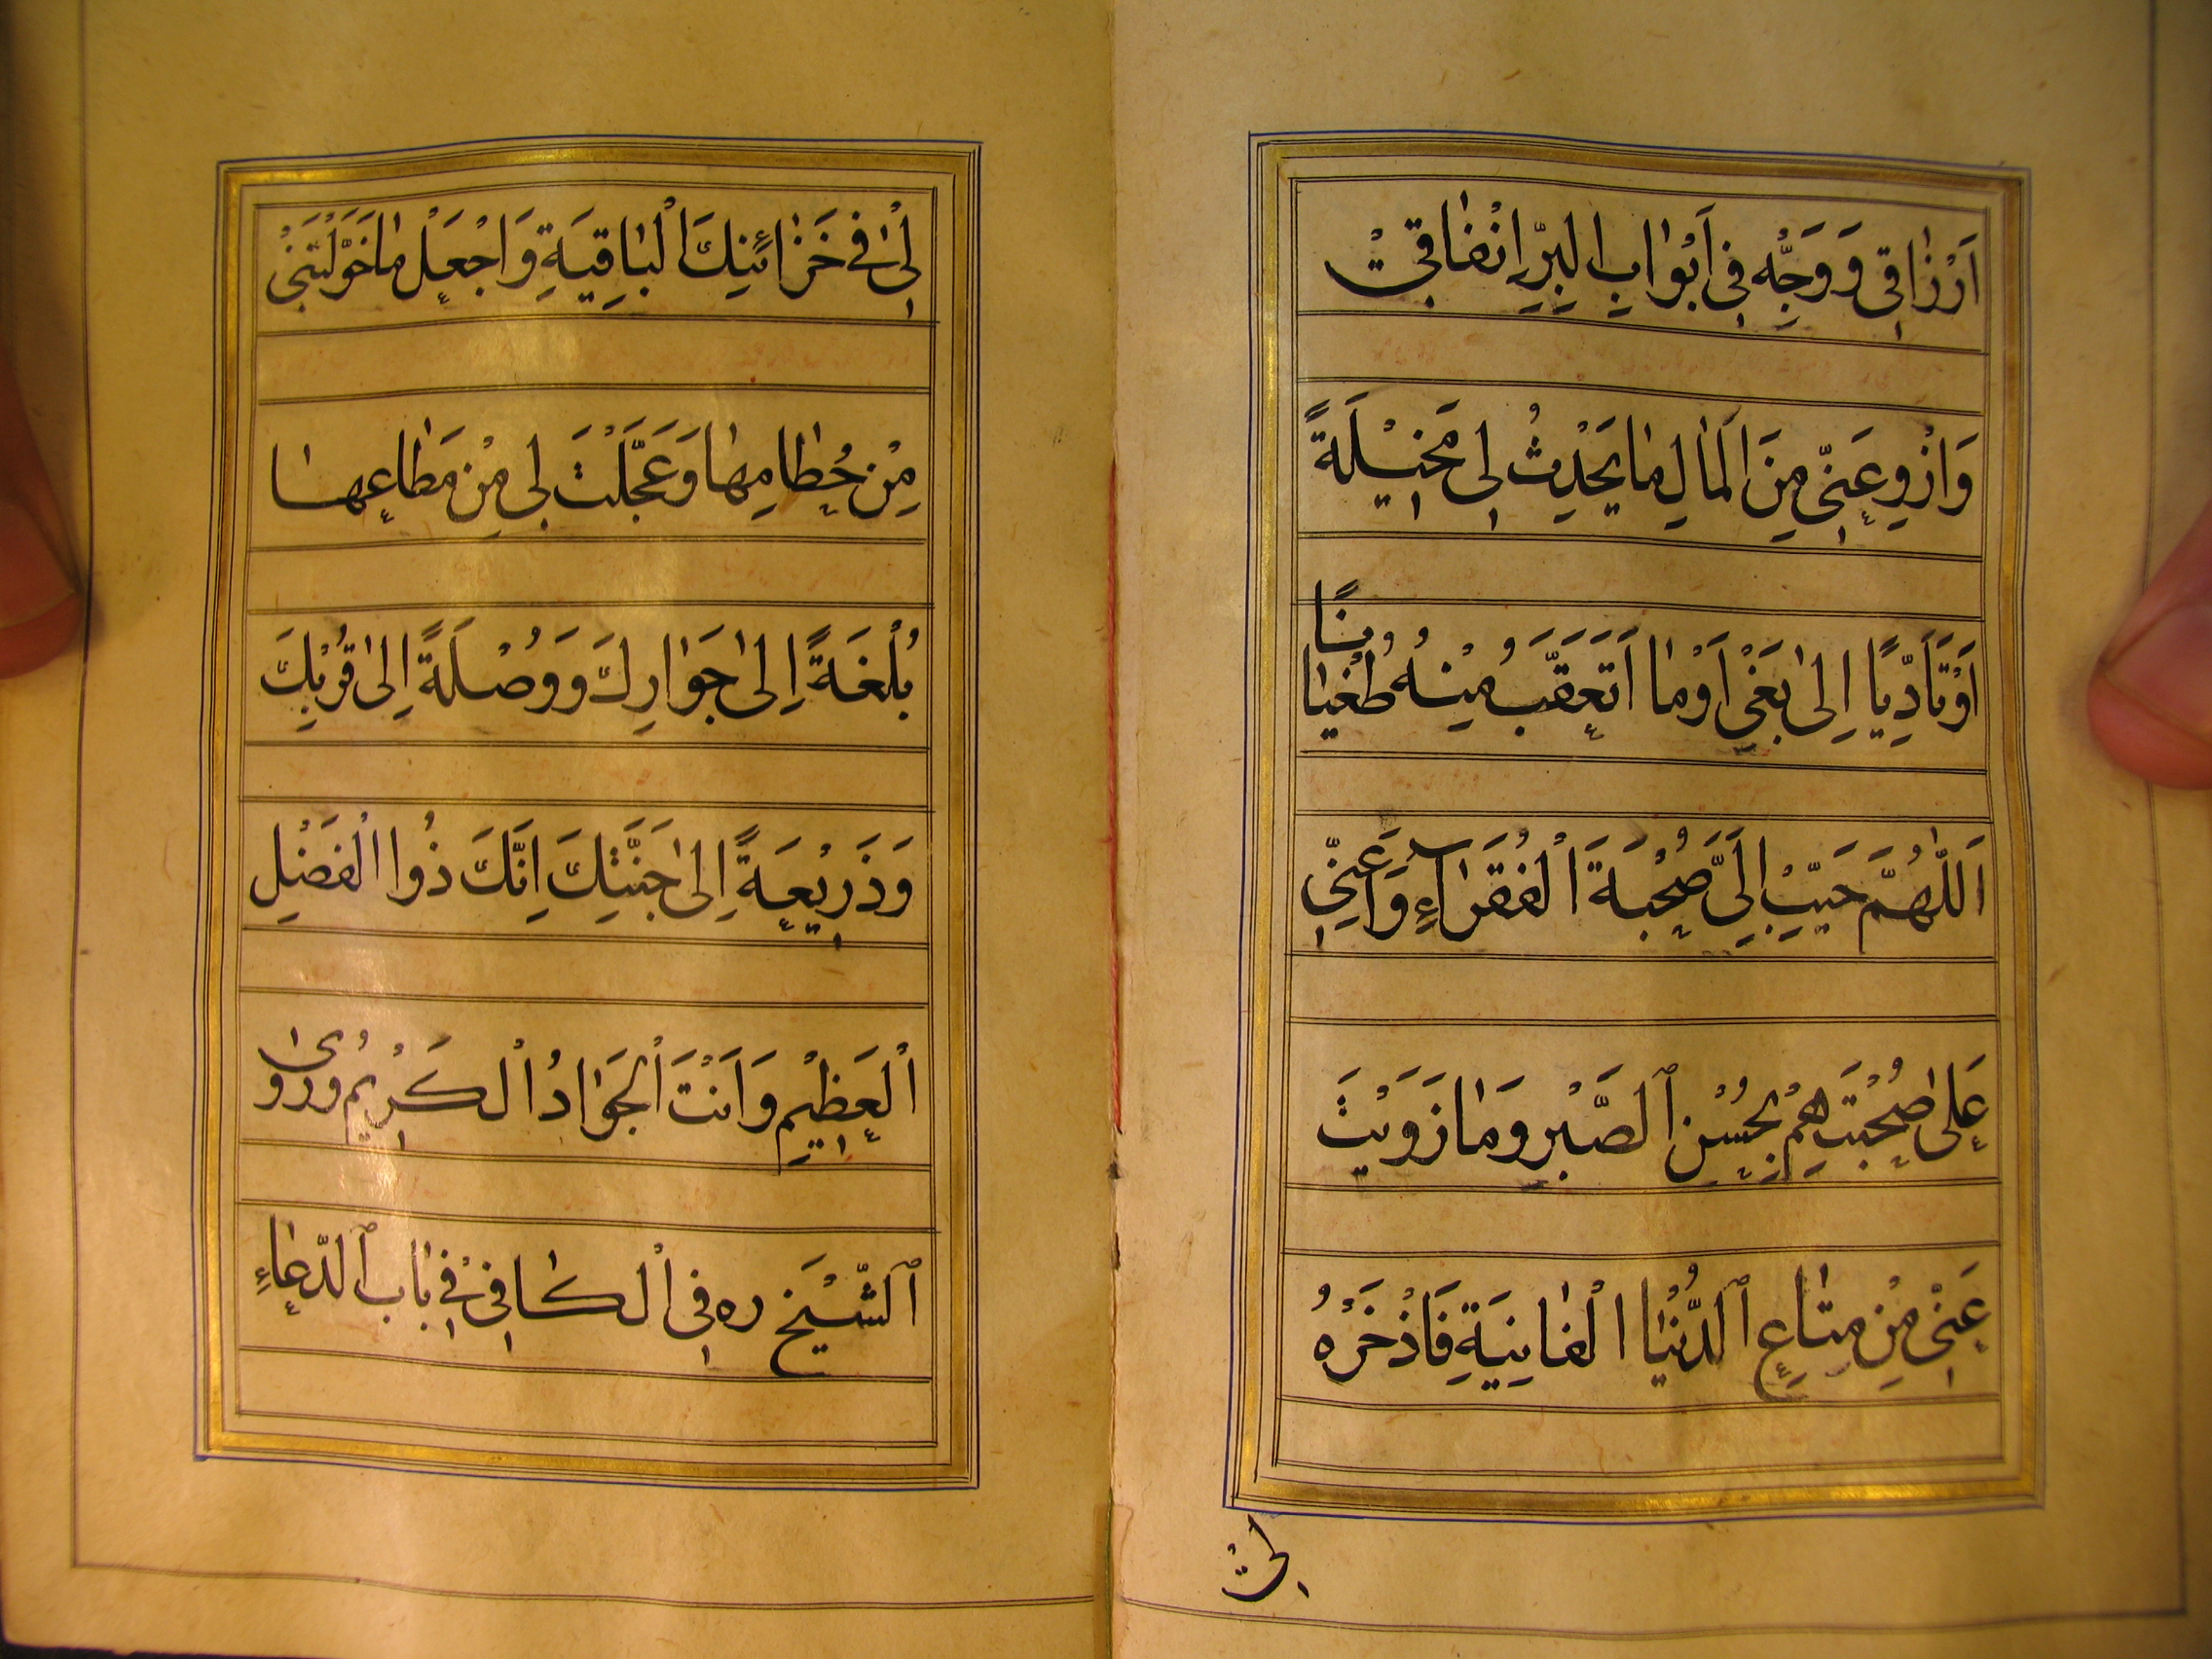 اَرْزاقِی وَ وَجِّه فِی اَبْوابِ البِرِّ اِنْفاقِی
وَازْوِ عَنِّی مِنَ المالِ ما یُحْدِثُ لِی مَخِیْلَةً
اَوْ تَأَدِّیًا اِلیٰ بَغْیٍ اَوْ ما اَتَعَقَّبُ مِنْهُ طُغْیانًا
اَللّٰهُمَّ حَبِّبْ اِلَیَّ صُحْبَةَ الْفُقَرآءِ وَاَعِنِّی
عَلیٰ صُحْبَتِهِمْ بِحُسْنِ ٱلصَّبْرِ وَما زَوَیْتَ
عَنِّی مِنْ مَتاعِ ٱلدُّنْیَا الْفانِیَةِ فَاذْخَرْهُ
لِی
لِی فِی خَزائِنِكَ الْباقِیَةِ وَاجْعَلْ ما خَوَّلْتَنِی
مِنْ حُطامِها وَعَجَّلْتَ لِی مِنْ مَتاعِها
بُلْغَةً اِلیٰ جَوارِكَ وَ وُصْلَةً اِلیٰ قُرْبِكَ
وَذَرِیْعَةً اِلیٰ جَنَّتِكَ اِنَّكَ ذُوا الْفَضْلِ
الْعَظِیْمِ وَاَنْتَ ٱلْجَوادُ الْكَرِیْمُ وروُی
ٱلشَّیْخ ره فِی الْكافِی فِی بٰاب ٱلدّعاءِ